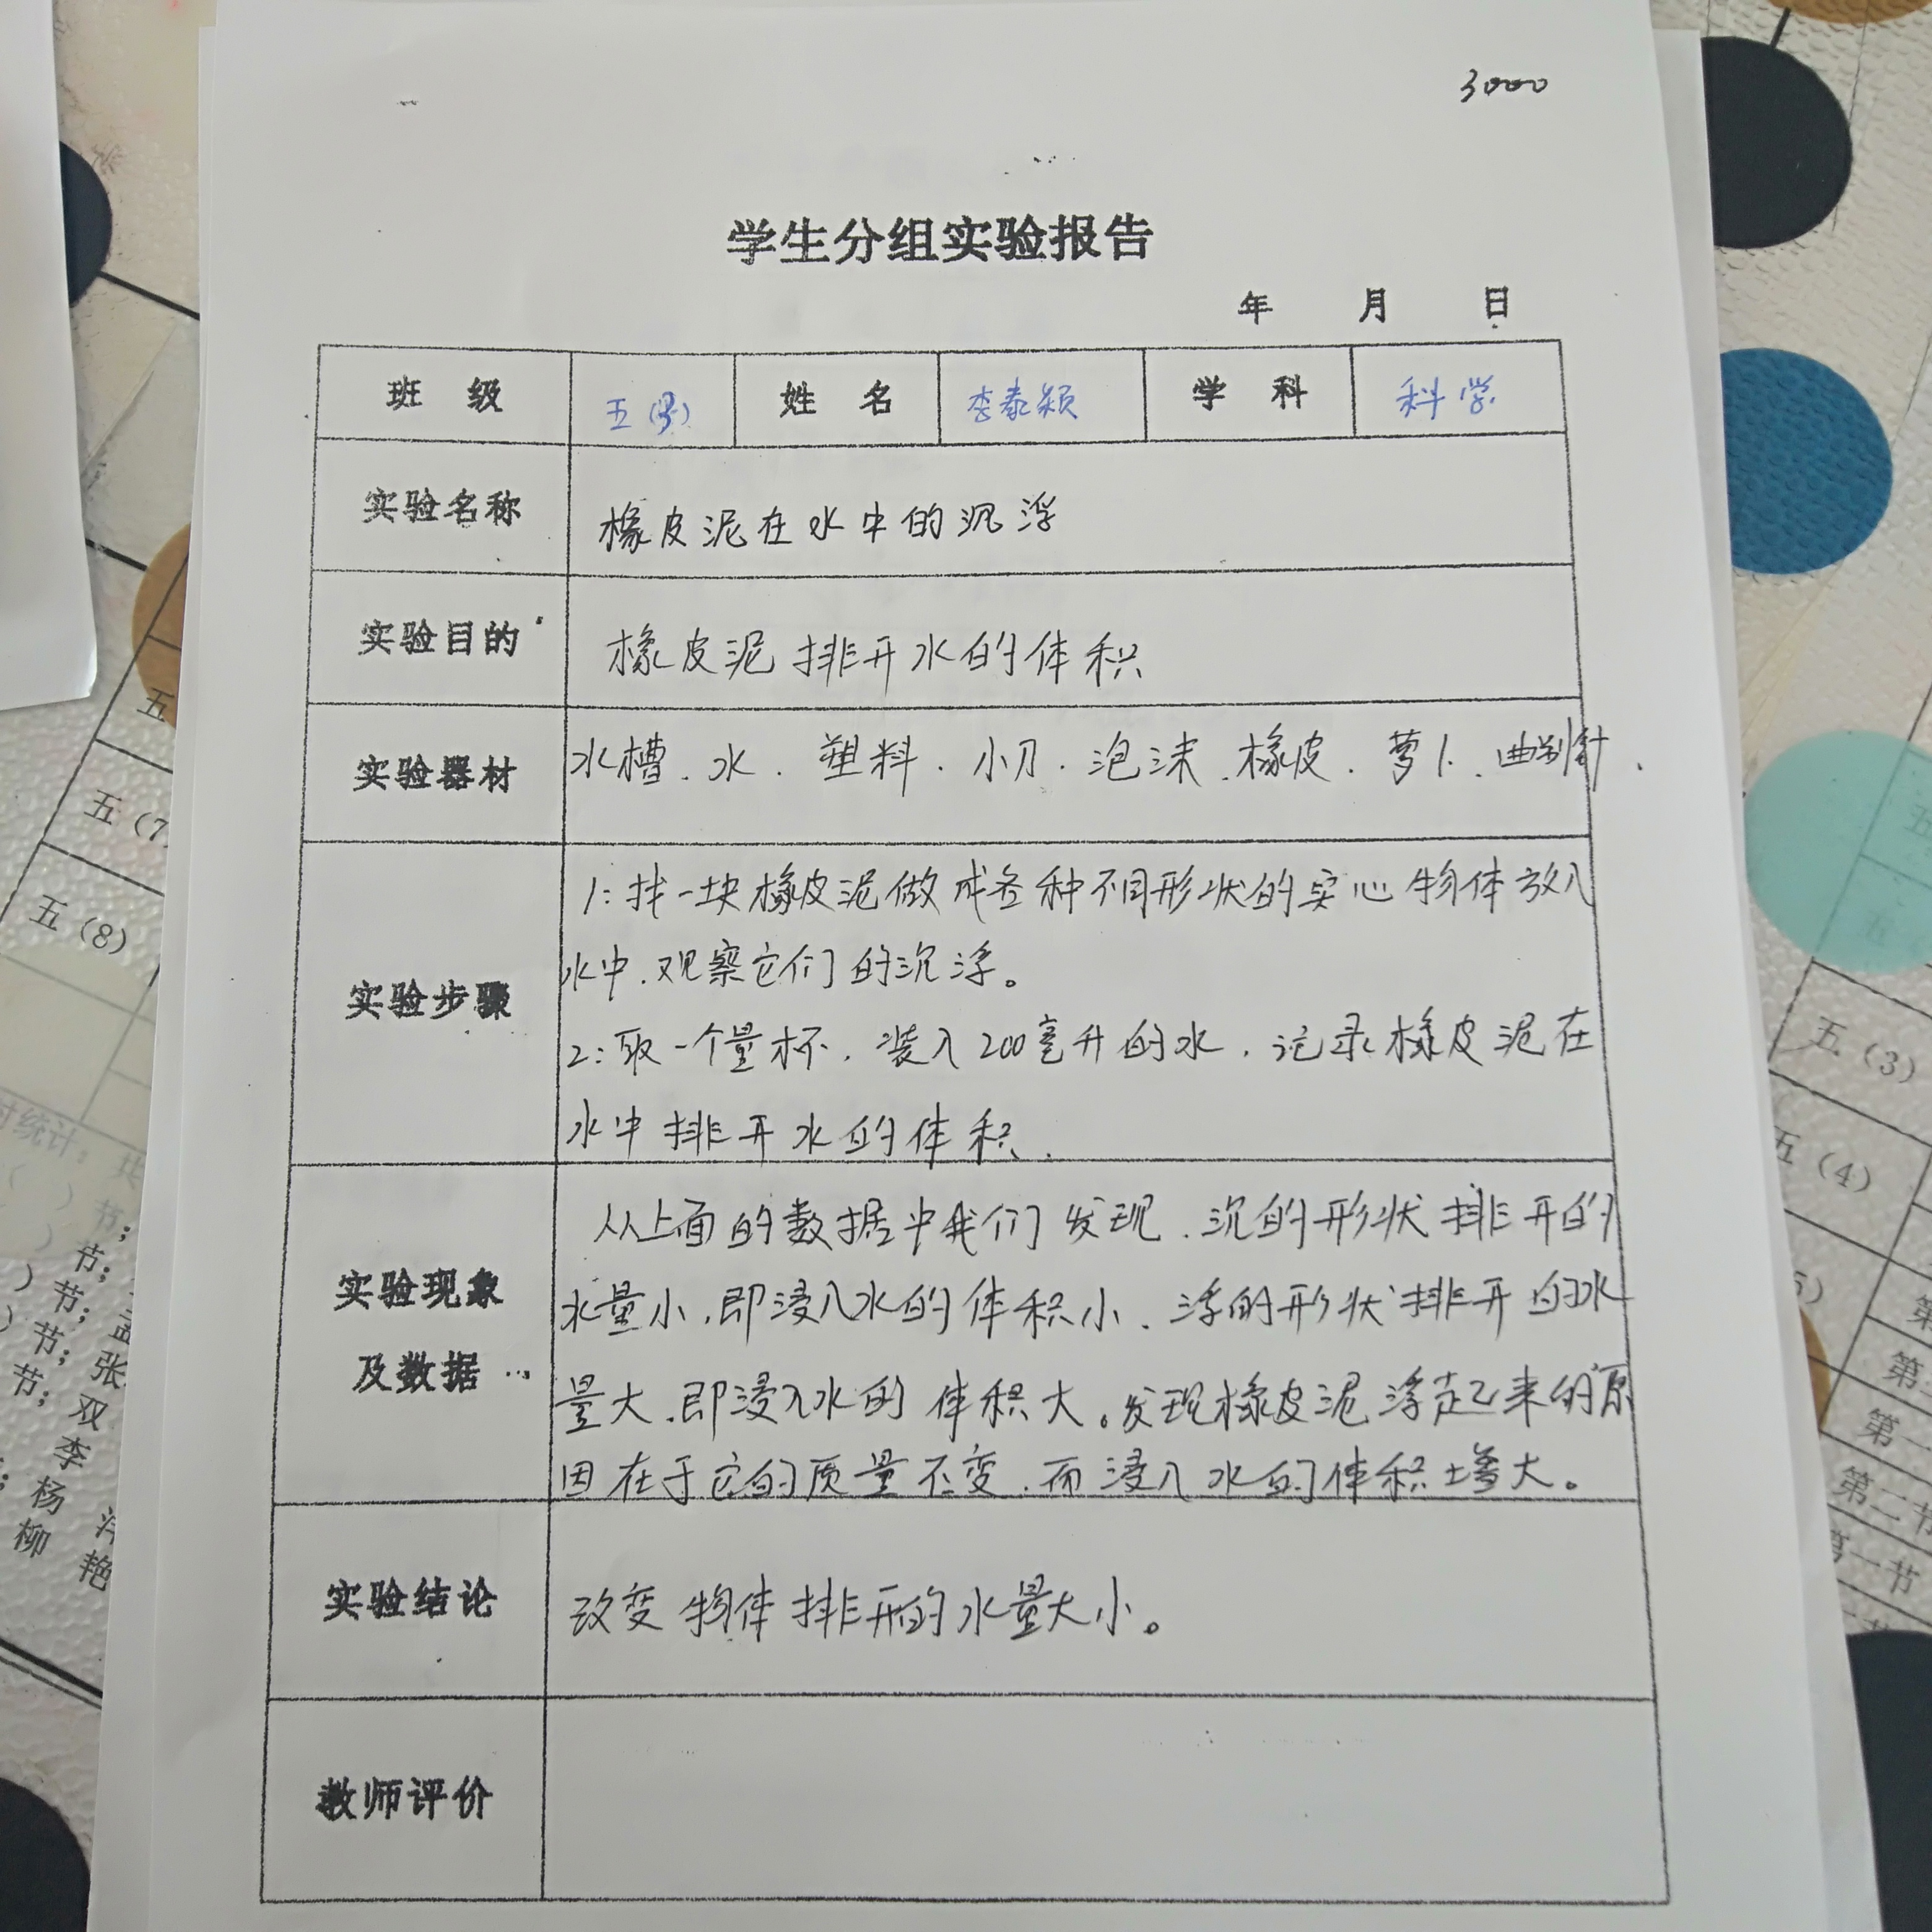 3000
学生分组实验报告
年 月 日
班 级 五(3) 姓 名 李泰颖 学 科 科学
实验名称 橡皮泥在水中的沉浮
实验目的 橡皮泥排开水的体积
实验器材 水槽、水、塑料、小刀、泡沫、橡皮、萝卜、曲别针、
1:找一块橡皮泥做成各种不同形状的实心物体放入
水中,观察它们的沉浮。
实验步骤
2:取一个量杯,装入200毫升的水,记录橡皮泥在
水中排开水的体积.
从上面的数据中我们发现,沉的形状排开的
实验现象
水量小,即浸入水的体积小、浮的形状排开的水
及数据
量大,即浸入水的体积大。发现橡皮泥浮起来的原
因在于它的质量不变,而浸入水的体积增大。
实验结论 改变物体排开的水量大小。
教师评价
五
五(7)
五(8)
时统计:共
节;
节;
节;
节;
张
双
李
杨
柳
艳
五(3)
五(4)
第二节
第一节